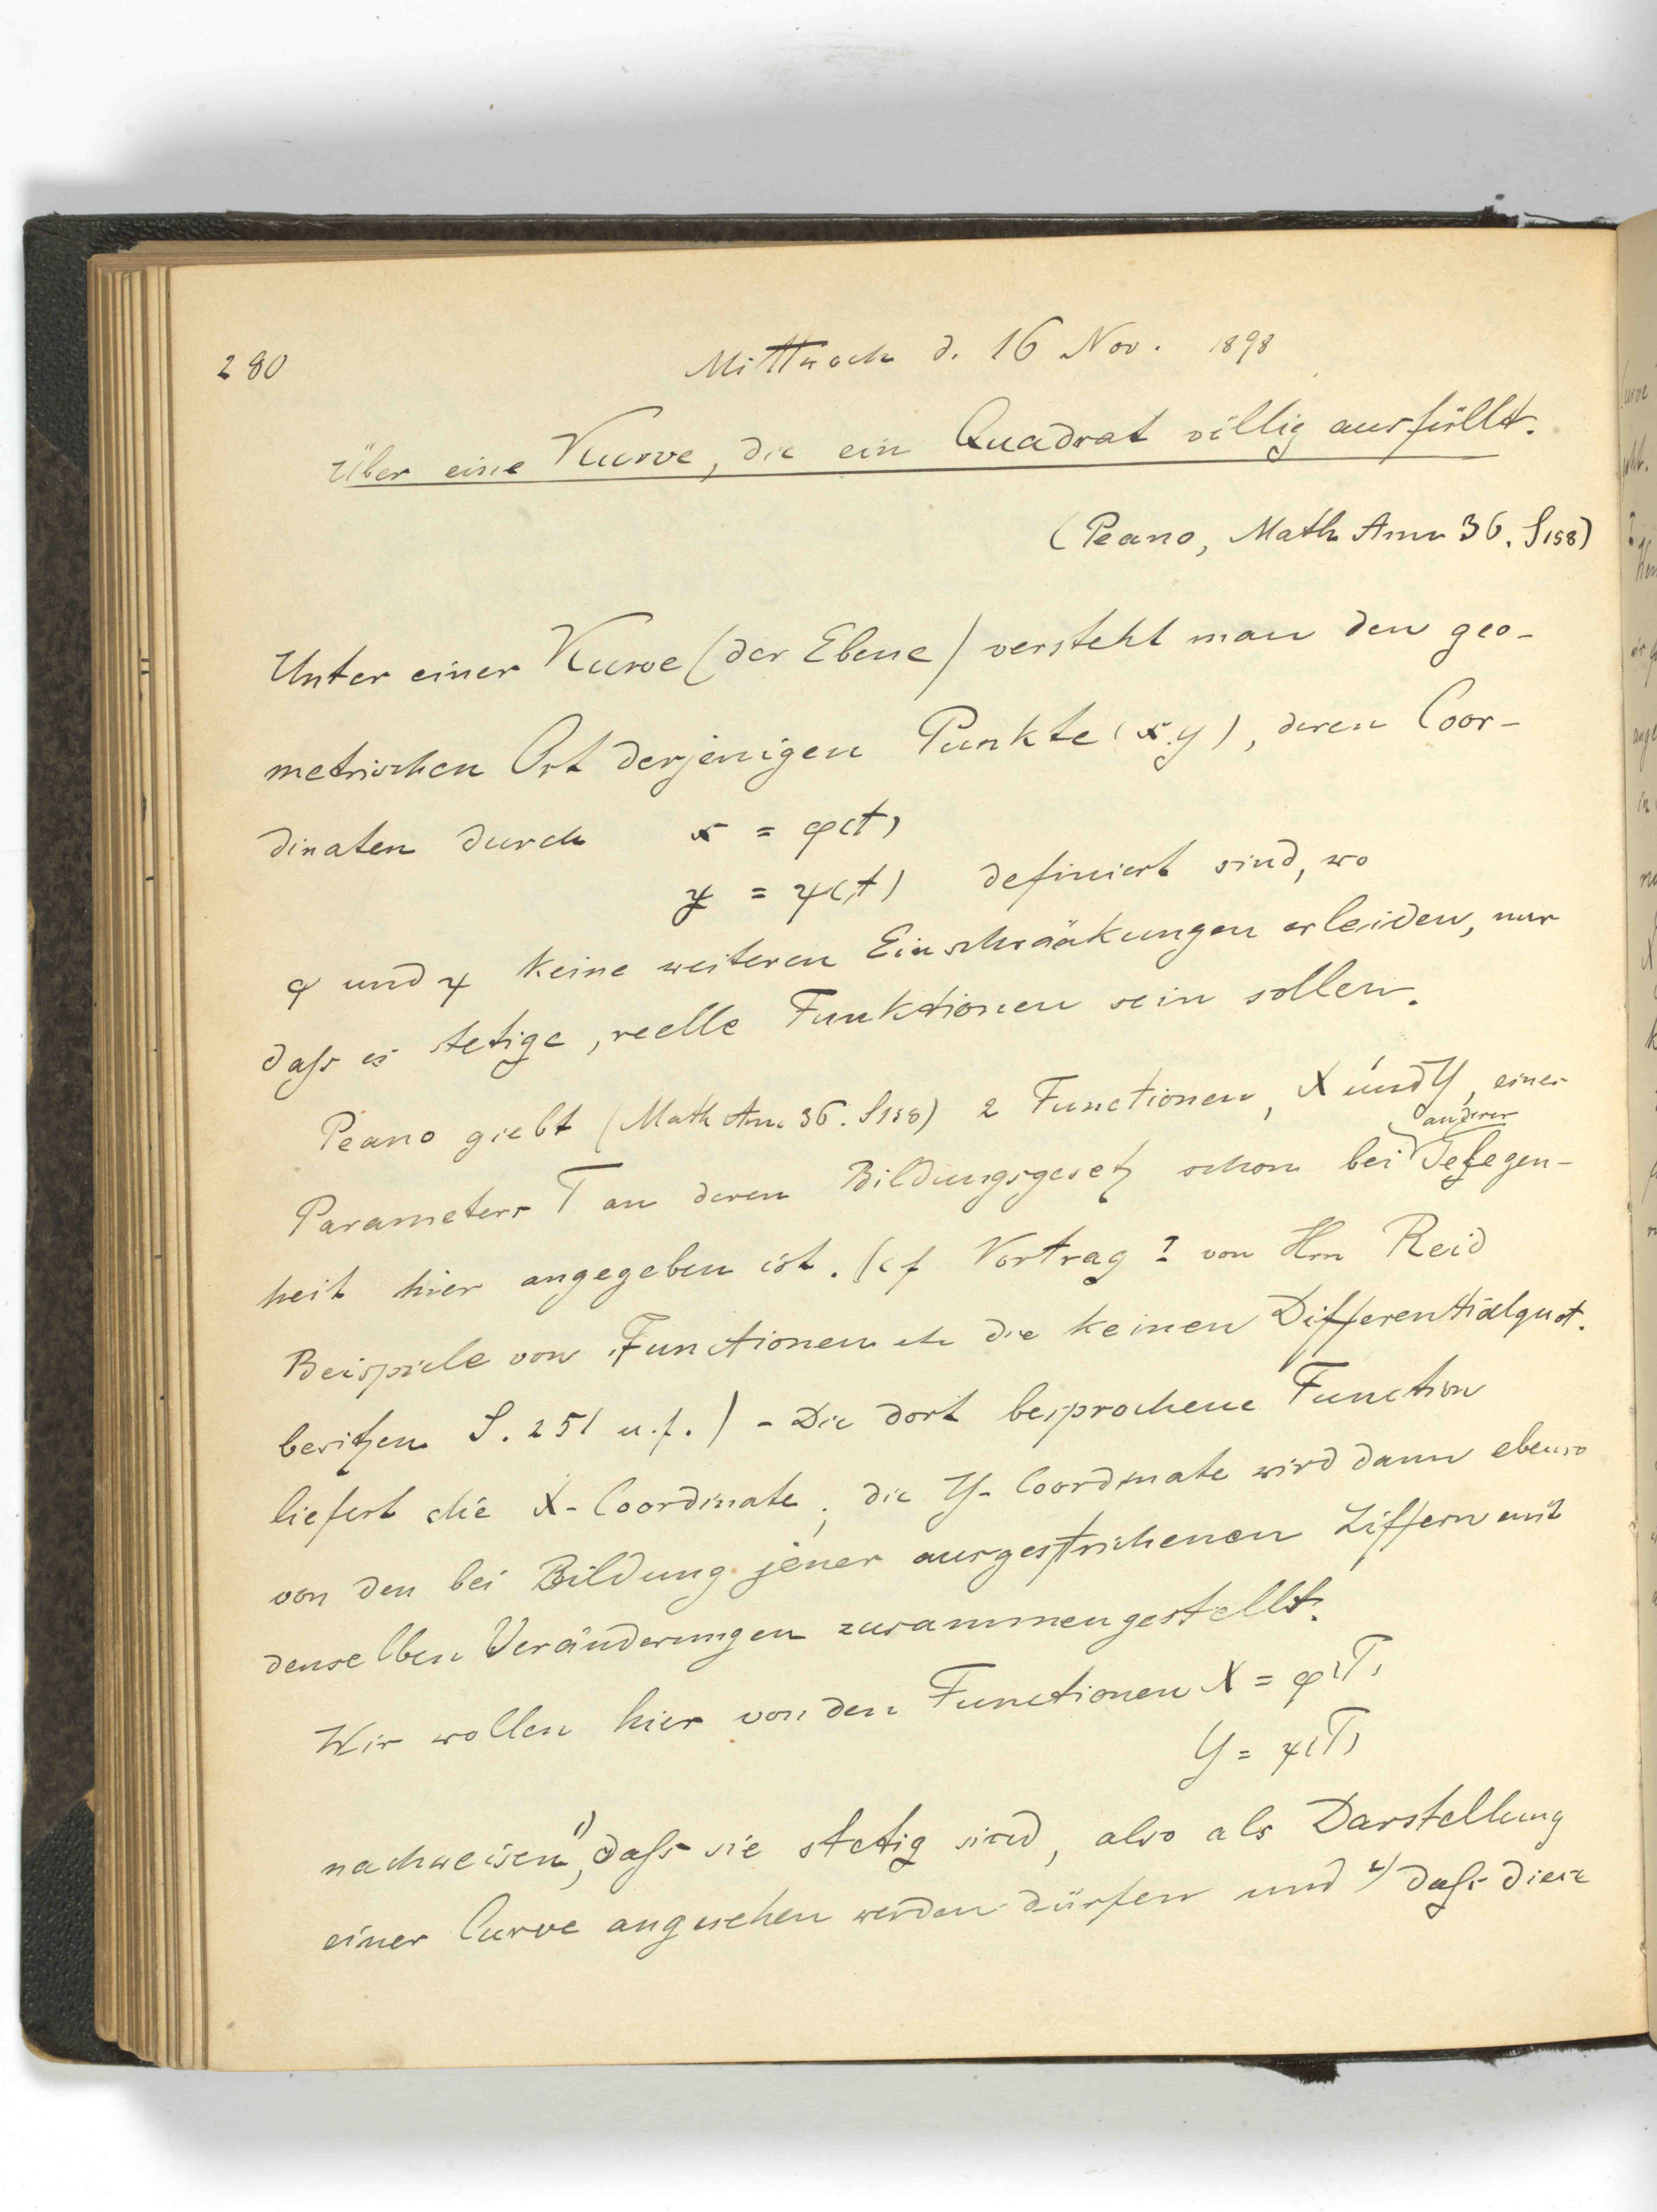 280
Mittwoch d. 16 Nov. 1898
Über eine Kurve, die ein Quadrat völlig ausfüllt.
(Peano, Math Ann 36. S158)
Unter einer Kurve (der Ebene) versteht man den geo-
metrischen Ort derjenigen Punkte (x.y), deren Coor-
dinaten durch x = φ(t)
y = ψ(t) definiert sind, wo
φ und ψ keine weiteren Einschränkungen erleiden, nur
daſs es stetige, reelle Funktionen sein sollen.
Peano giebt (Math Ann. 36. S158) 2 Functionen, X und Y, eines
anderer
Parameters T an deren Bildungsgesetz schon bei Gelegen-
heit hier angegeben ist. (cf Vortrag I von Hrn Reid
Beispiele von Functionen etc die keinen Differentialquot.
besitzen S. 251 u.f.) - Die dort besprochene Function
liefert die X-Coordinate, die Y-Coordinate wird dann ebenso
von den bei Bildung jener ausgestrichenen Ziffern mit
denselben Veränderungen zusammengestellt.
Wir wollen hier von den Functionen X = φ(T)
Y = ψ(T)
nachweisen 1), daſs sie stetig sind, also als Darstellung
einer Curve angesehen werden dürfen und 2) daſs diese